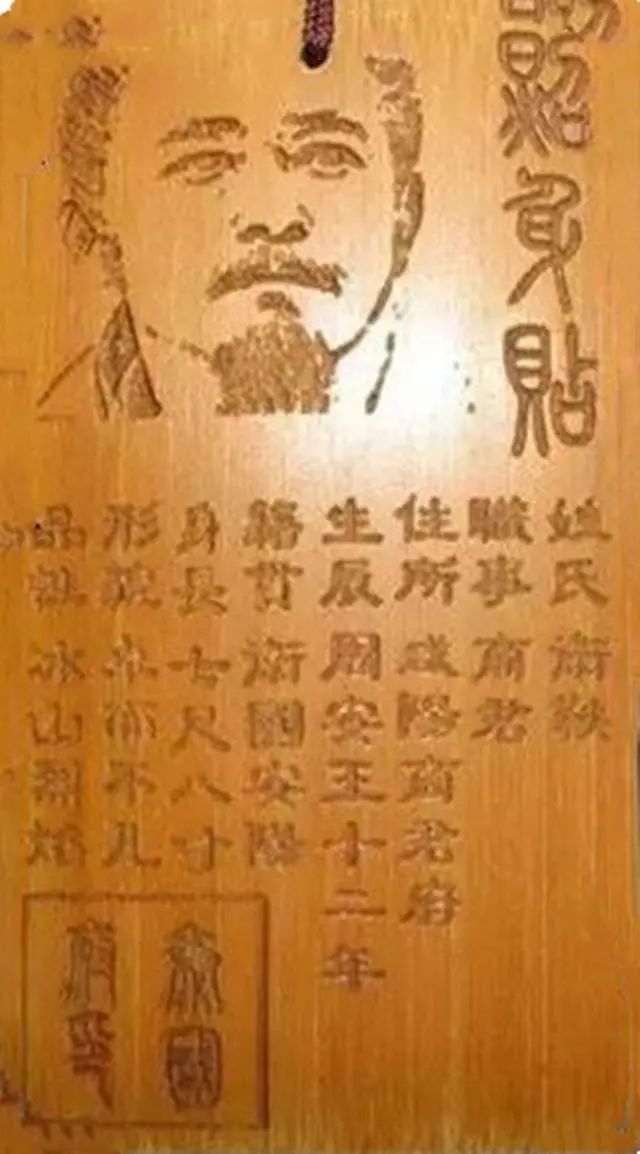 照身貼
姓氏 衛鞅
職事 商君
住所 咸陽商君府
生辰 周安王十二年
籍貫 衛國安陽
身長 七尺八寸
形貌 不凡
品 冰山烈焰
國
印